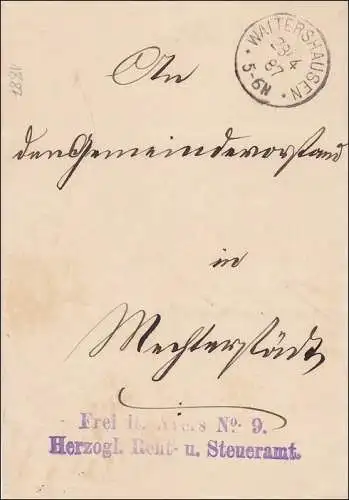 1887
WALTERSHAUSEN
23/4
87
5-6N
An
den Gemeindevorstand
in
Mechterstädt
Frei lt. Avers No. 9.
Herzogl. Rent- u. Steueramt.